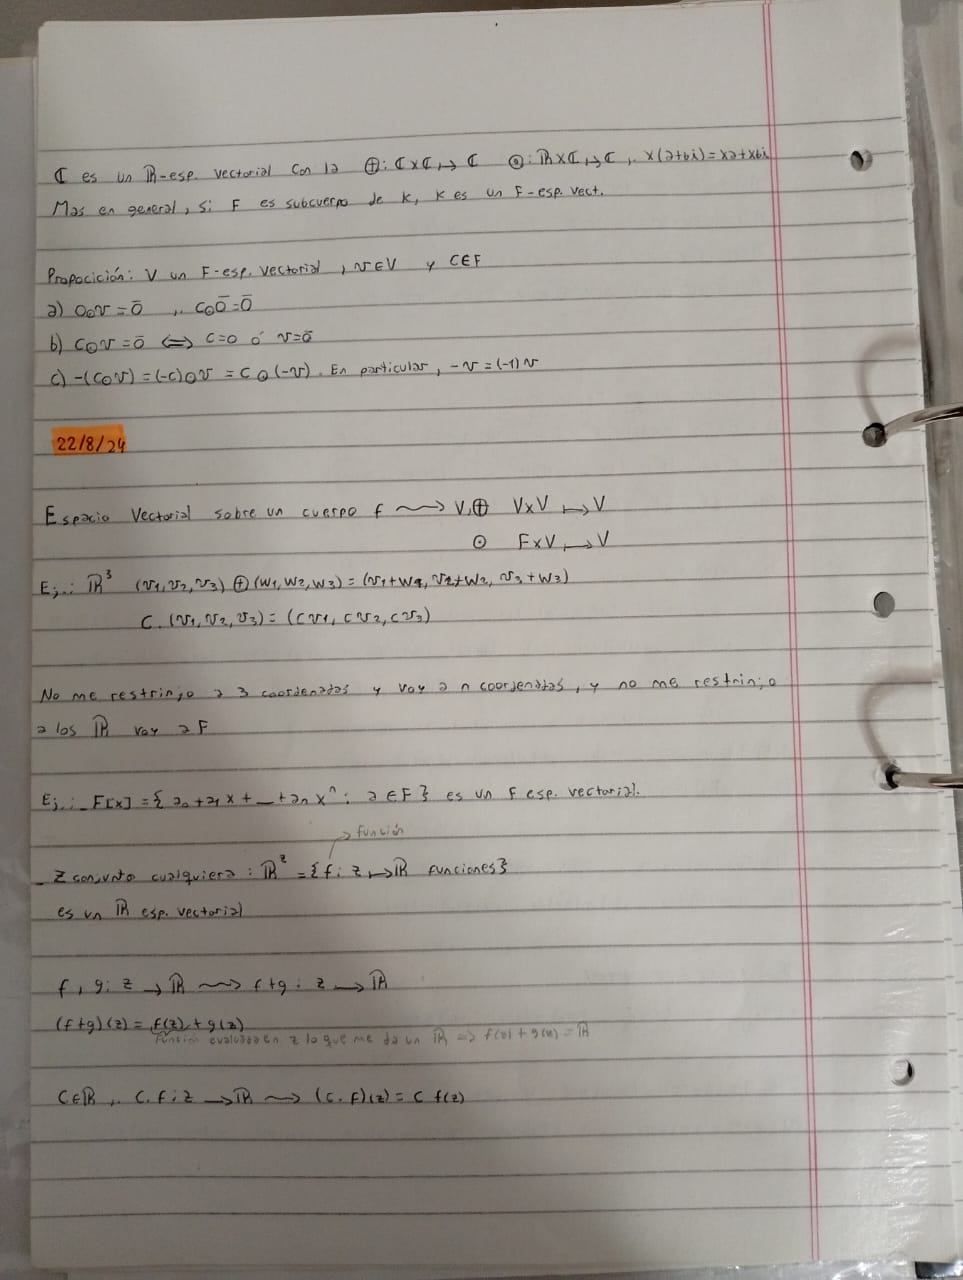 ℂ es un ℝ-esp. vectorial con la ⊕: ℂxℂ ↦ ℂ ⊙: ℝxℂ ↦ ℂ ,, x(a+bi)=xa+xbi
Mas en general, si F es subcuerpo de K, K es un F-esp. vect.
Propocición: V un F-esp. vectorial , v∈V y C∈F
a) 0⊙v = ō ,, c⊙ō=ō
b) c⊙v = ō ⟺ c=0 ó v=ō
c) -(c⊙v) = (-c)⊙v = c⊙(-v). En particular, -v = (-1)v
22/8/24
Espacio Vectorial sobre un cuerpo f ⇝ V,⊕ VxV ↦ V
⊙ FxV ↦ V
Ej.: ℝ³ (v1,v2,v3) ⊕ (w1,w2,w3) = (v1+w1, v2+w2, v3+w3)
C. (v1,v2,v3) = (cv1, cv2, cv3)
No me restrinjo a 3 coordenadas y voy a n coordenadas, y no me restrinjo
a los ℝ voy a F
Ej.: _ F[x] = { a0+a1x+_+anxⁿ : a ∈ F } es un F esp. vectorial.
→ función
_ Z conjunto cualquiera : ℝᶻ = {f: z ↦ ℝ funciones}
es un ℝ esp. vectorial
f, g: z → ℝ ⇝ f+g : z → ℝ
(f+g)(z) = f(z) + g(z)
Función evaluada en z lo que me da un ℝ => f(z) + g(z) = ℝ
C∈ℝ ,, C.f: z → ℝ ⇝ (c.f)(z) = c f(z)